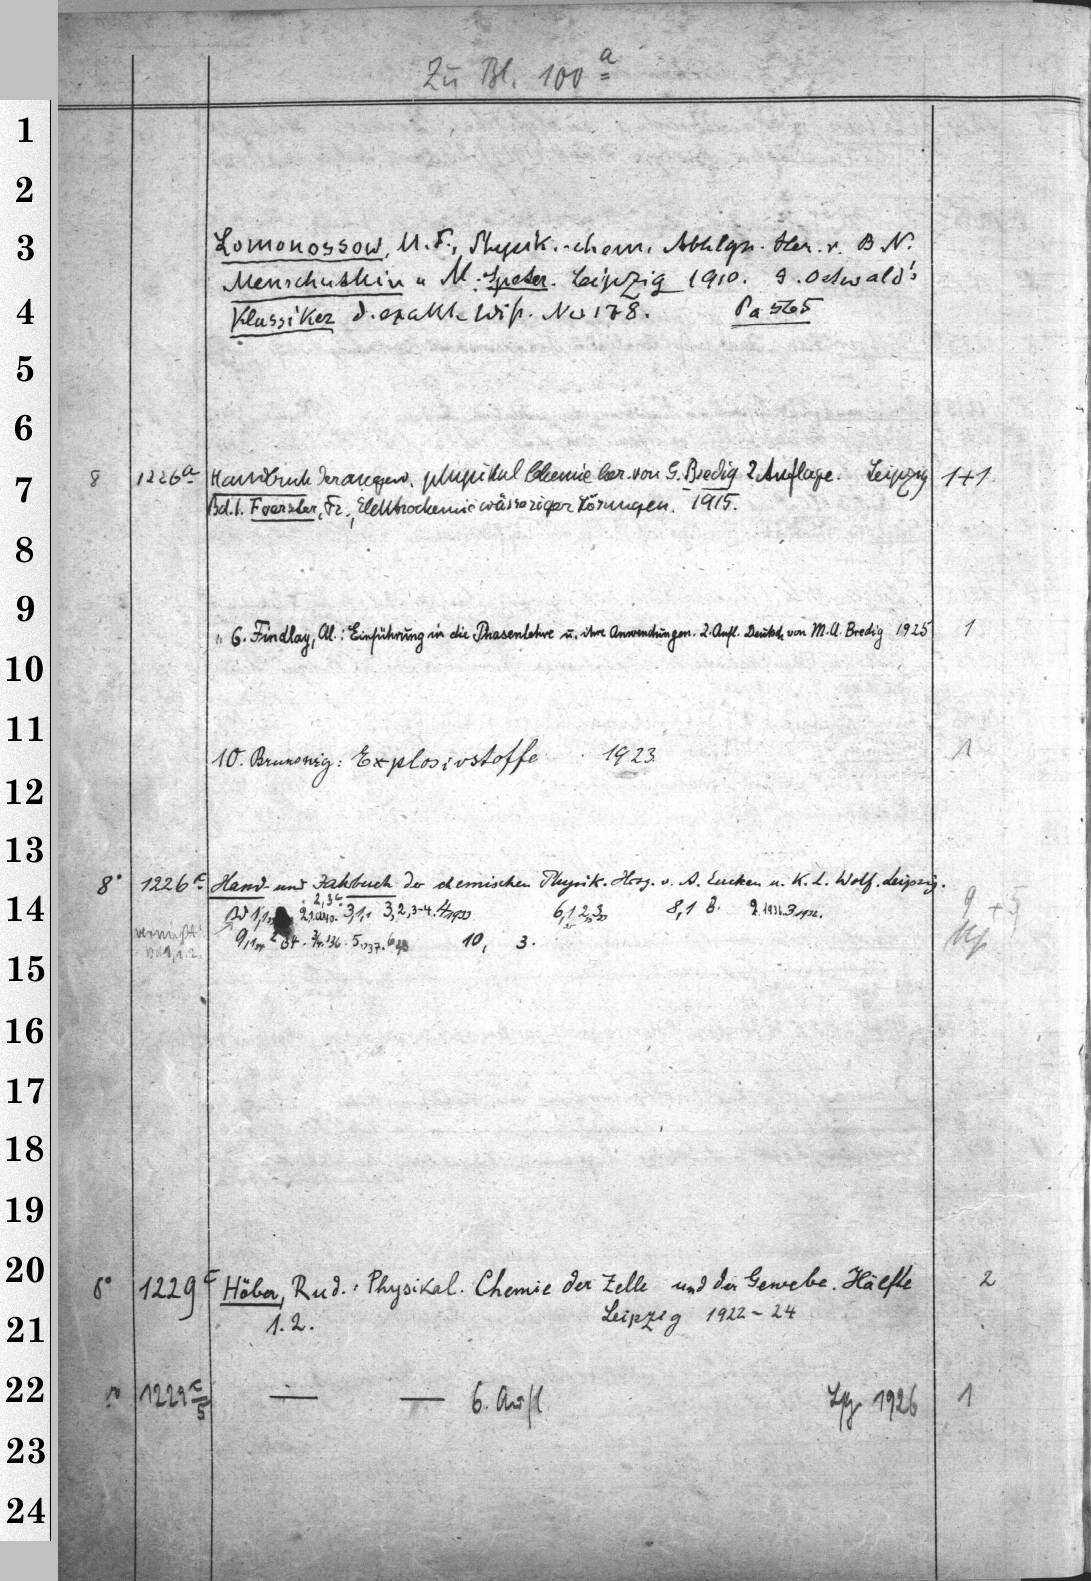 Zu Bl. 100 a
1
2
3
Lomonossow, M. F., Physik.-chem. Abhlgn. Her. v. B. N.
Menschutkin u M. Speter. Leipzig 1910. J. Ostwald's
4
Klassiker d. exakt. Wiss. No 178. Pa 565
5
6
8 1226a Handbuch der angew. physikal Chemie her. von G. Bredig 2 Auflage. Leipzig 1+1
7
Bd. 1. Foerster, Fr., Elektrochemie wässeriger Lösungen. 1915.
8
9
" 6. Findlay, Al.: Einführung in die Phasenlehre u. ihre Anwendungen. 2. Aufl. Deutsch von M. A. Bredig 1925 1
10
11
10. Brunswig: Explosivstoffe 1923 1
12
13
8° 1226c Hand- und Jahrbuch der chemischen Physik. Hrsg. v. A. Eucken u. K. L. Wolf. Leipzig.
14
Bd 1,1 3,1, 3,2,3-4. 6,1.2. 8,1 9 + 5
vermißt
Bd 1,1.2. 9,1 10, 3.
15
16
17
18
19
20
8° 1229c Höber, Rud.: Physikal. Chemie der Zelle und der Gewebe. Hälfte 2
21
1. 2. Leipzig 1922-24
22
8° 1229 c/5 — — 6. Aufl Lpg 1926 1
23
24